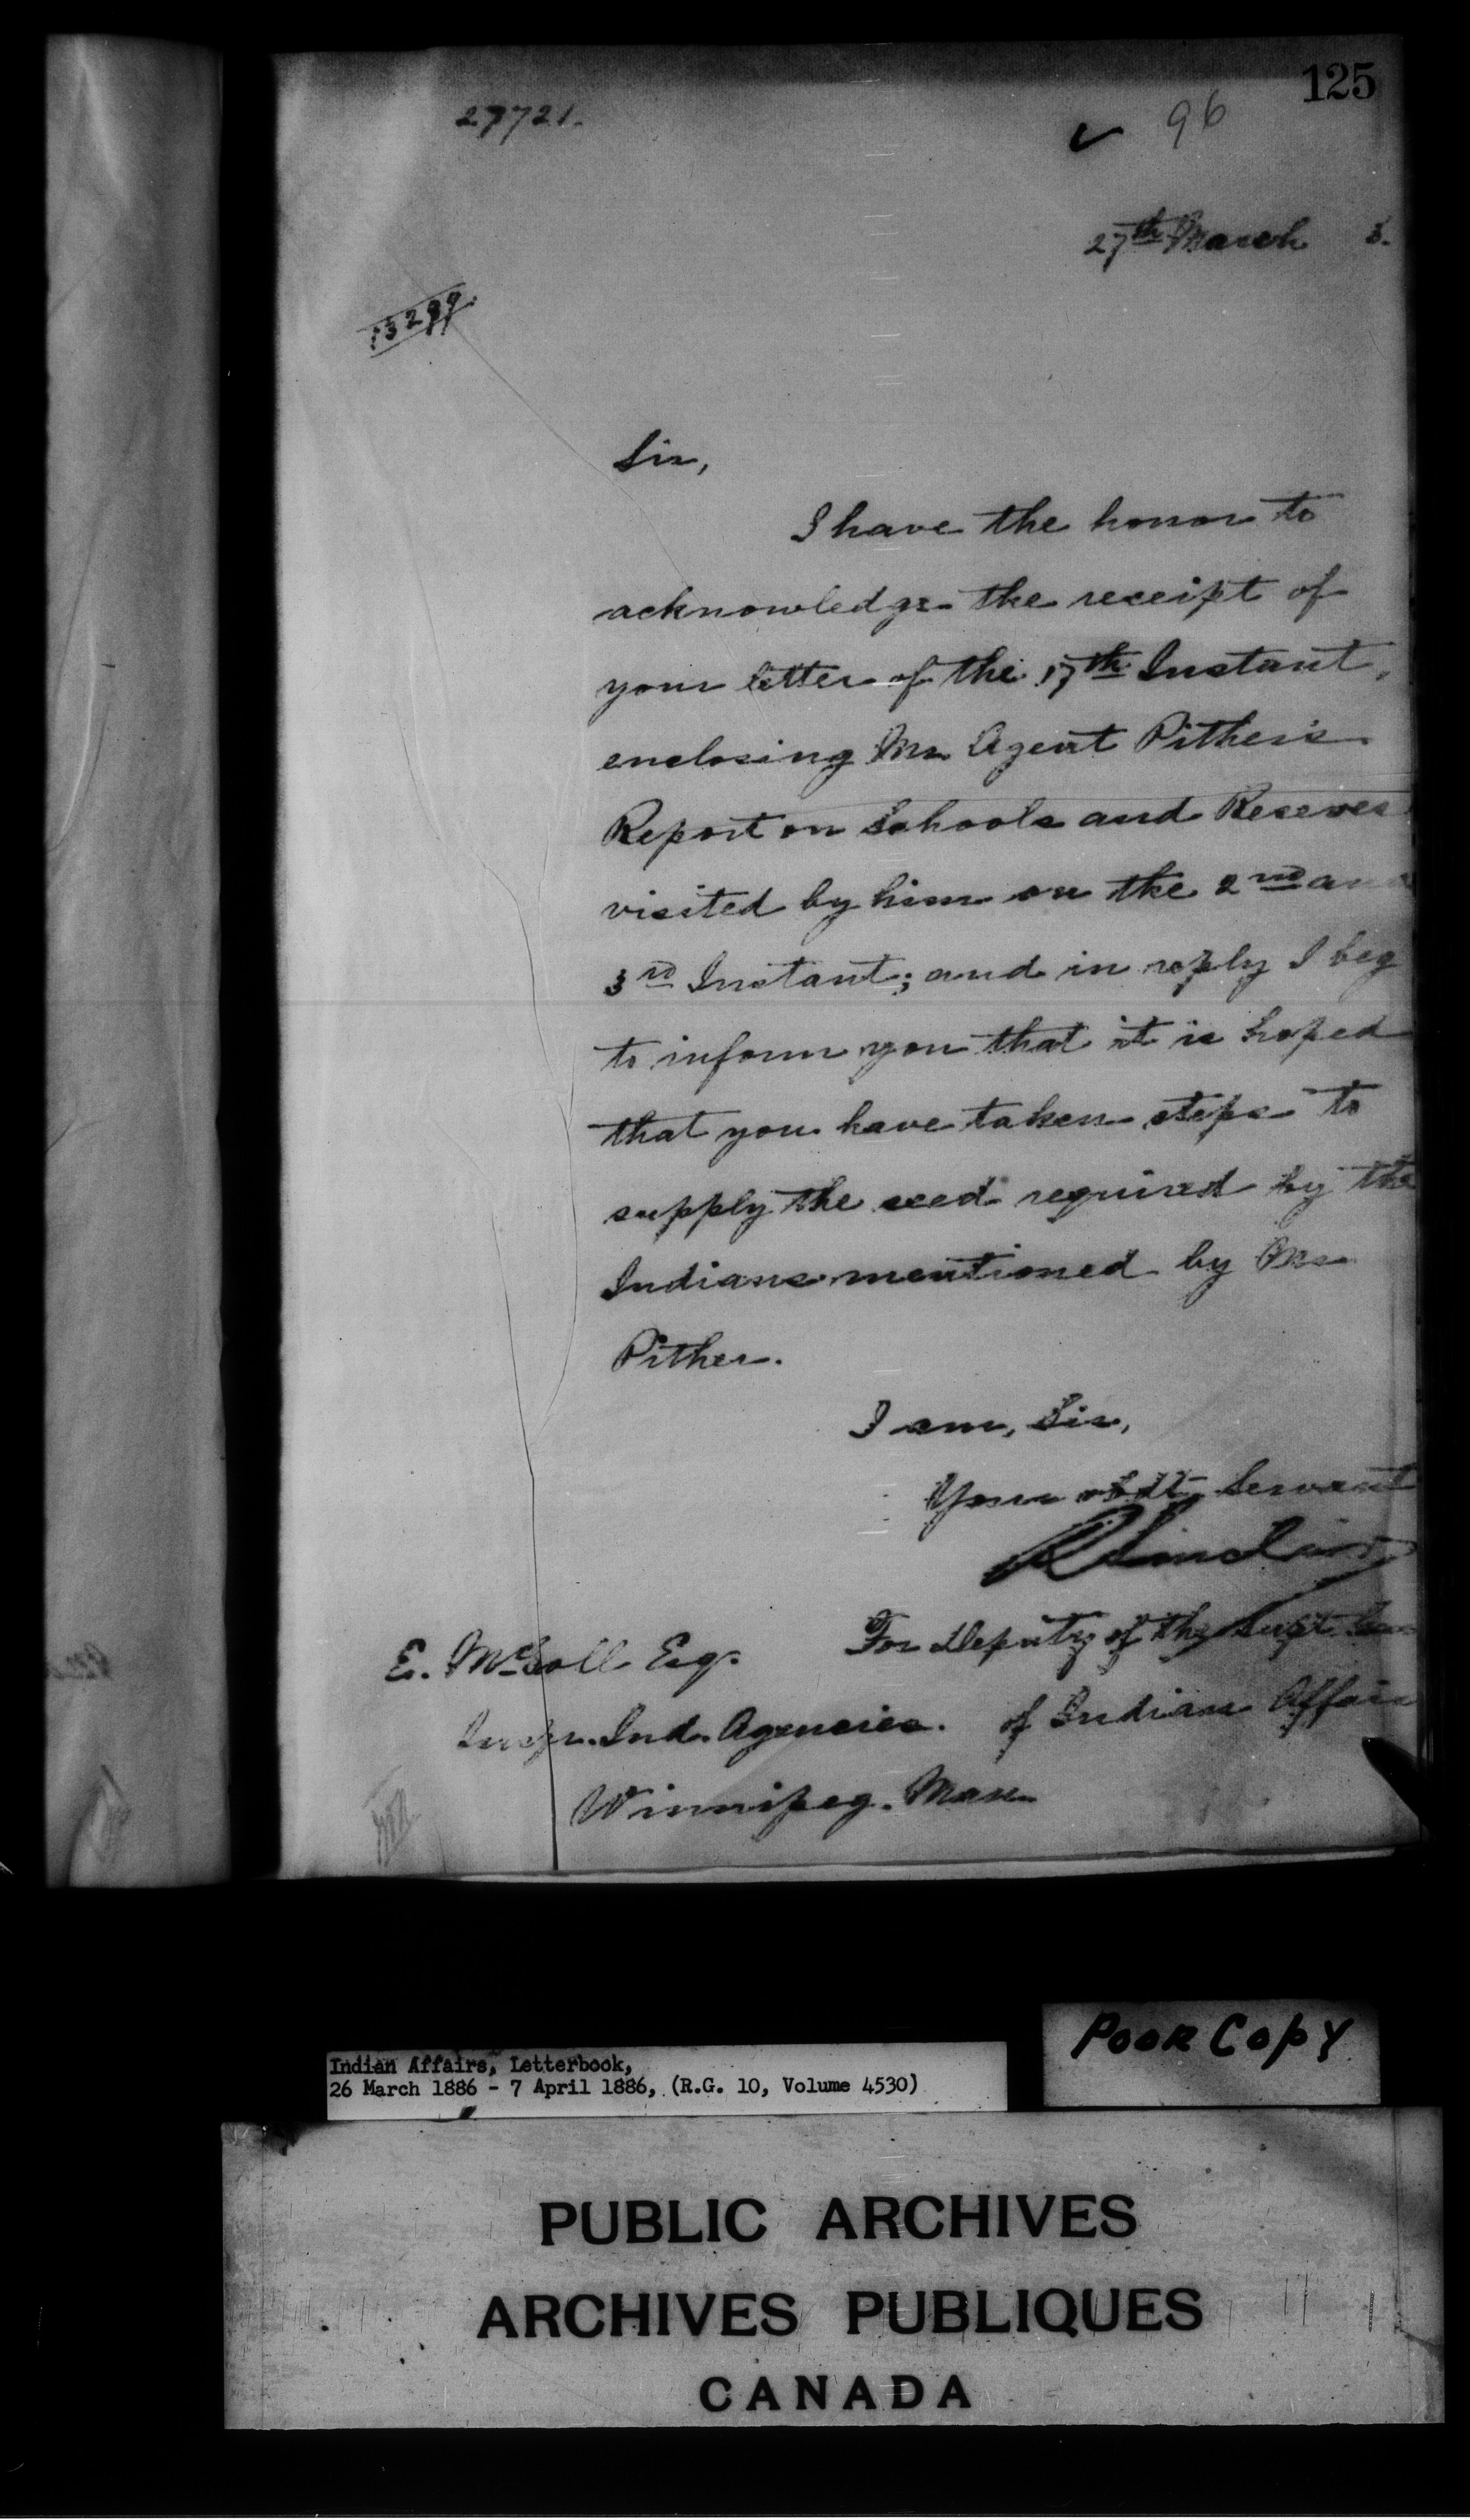 125
27721.
96
27th March 6.
13299
Sir,
I have the honor to
acknowledge the receipt of
your letter of the 17th Instant,
enclosing Mr. Agent Pither's
Report on Schools and Reserves
visited by him on the 2nd and
3rd Instant; and in reply I beg
to inform you that it is hoped
that you have taken steps to
supply the seed required by the
Indians mentioned by Mr
Pither.
I am, Sir,
Your obdt. Servant
R Sinclair
For Deputy of the Supt. Gen
E. McColl Esq.
of Indian Affairs
Inspr. Ind. Agencies.
Winnipeg. Man.
Poor Copy
Indian Affairs, Letterbook,
26 March 1886 - 7 April 1886, (R.G. 10, Volume 4530)
PUBLIC ARCHIVES
ARCHIVES PUBLIQUES
CANADA